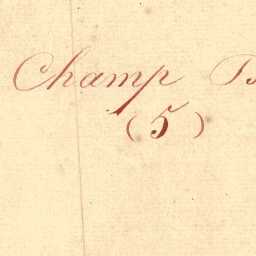 Champ
(5)